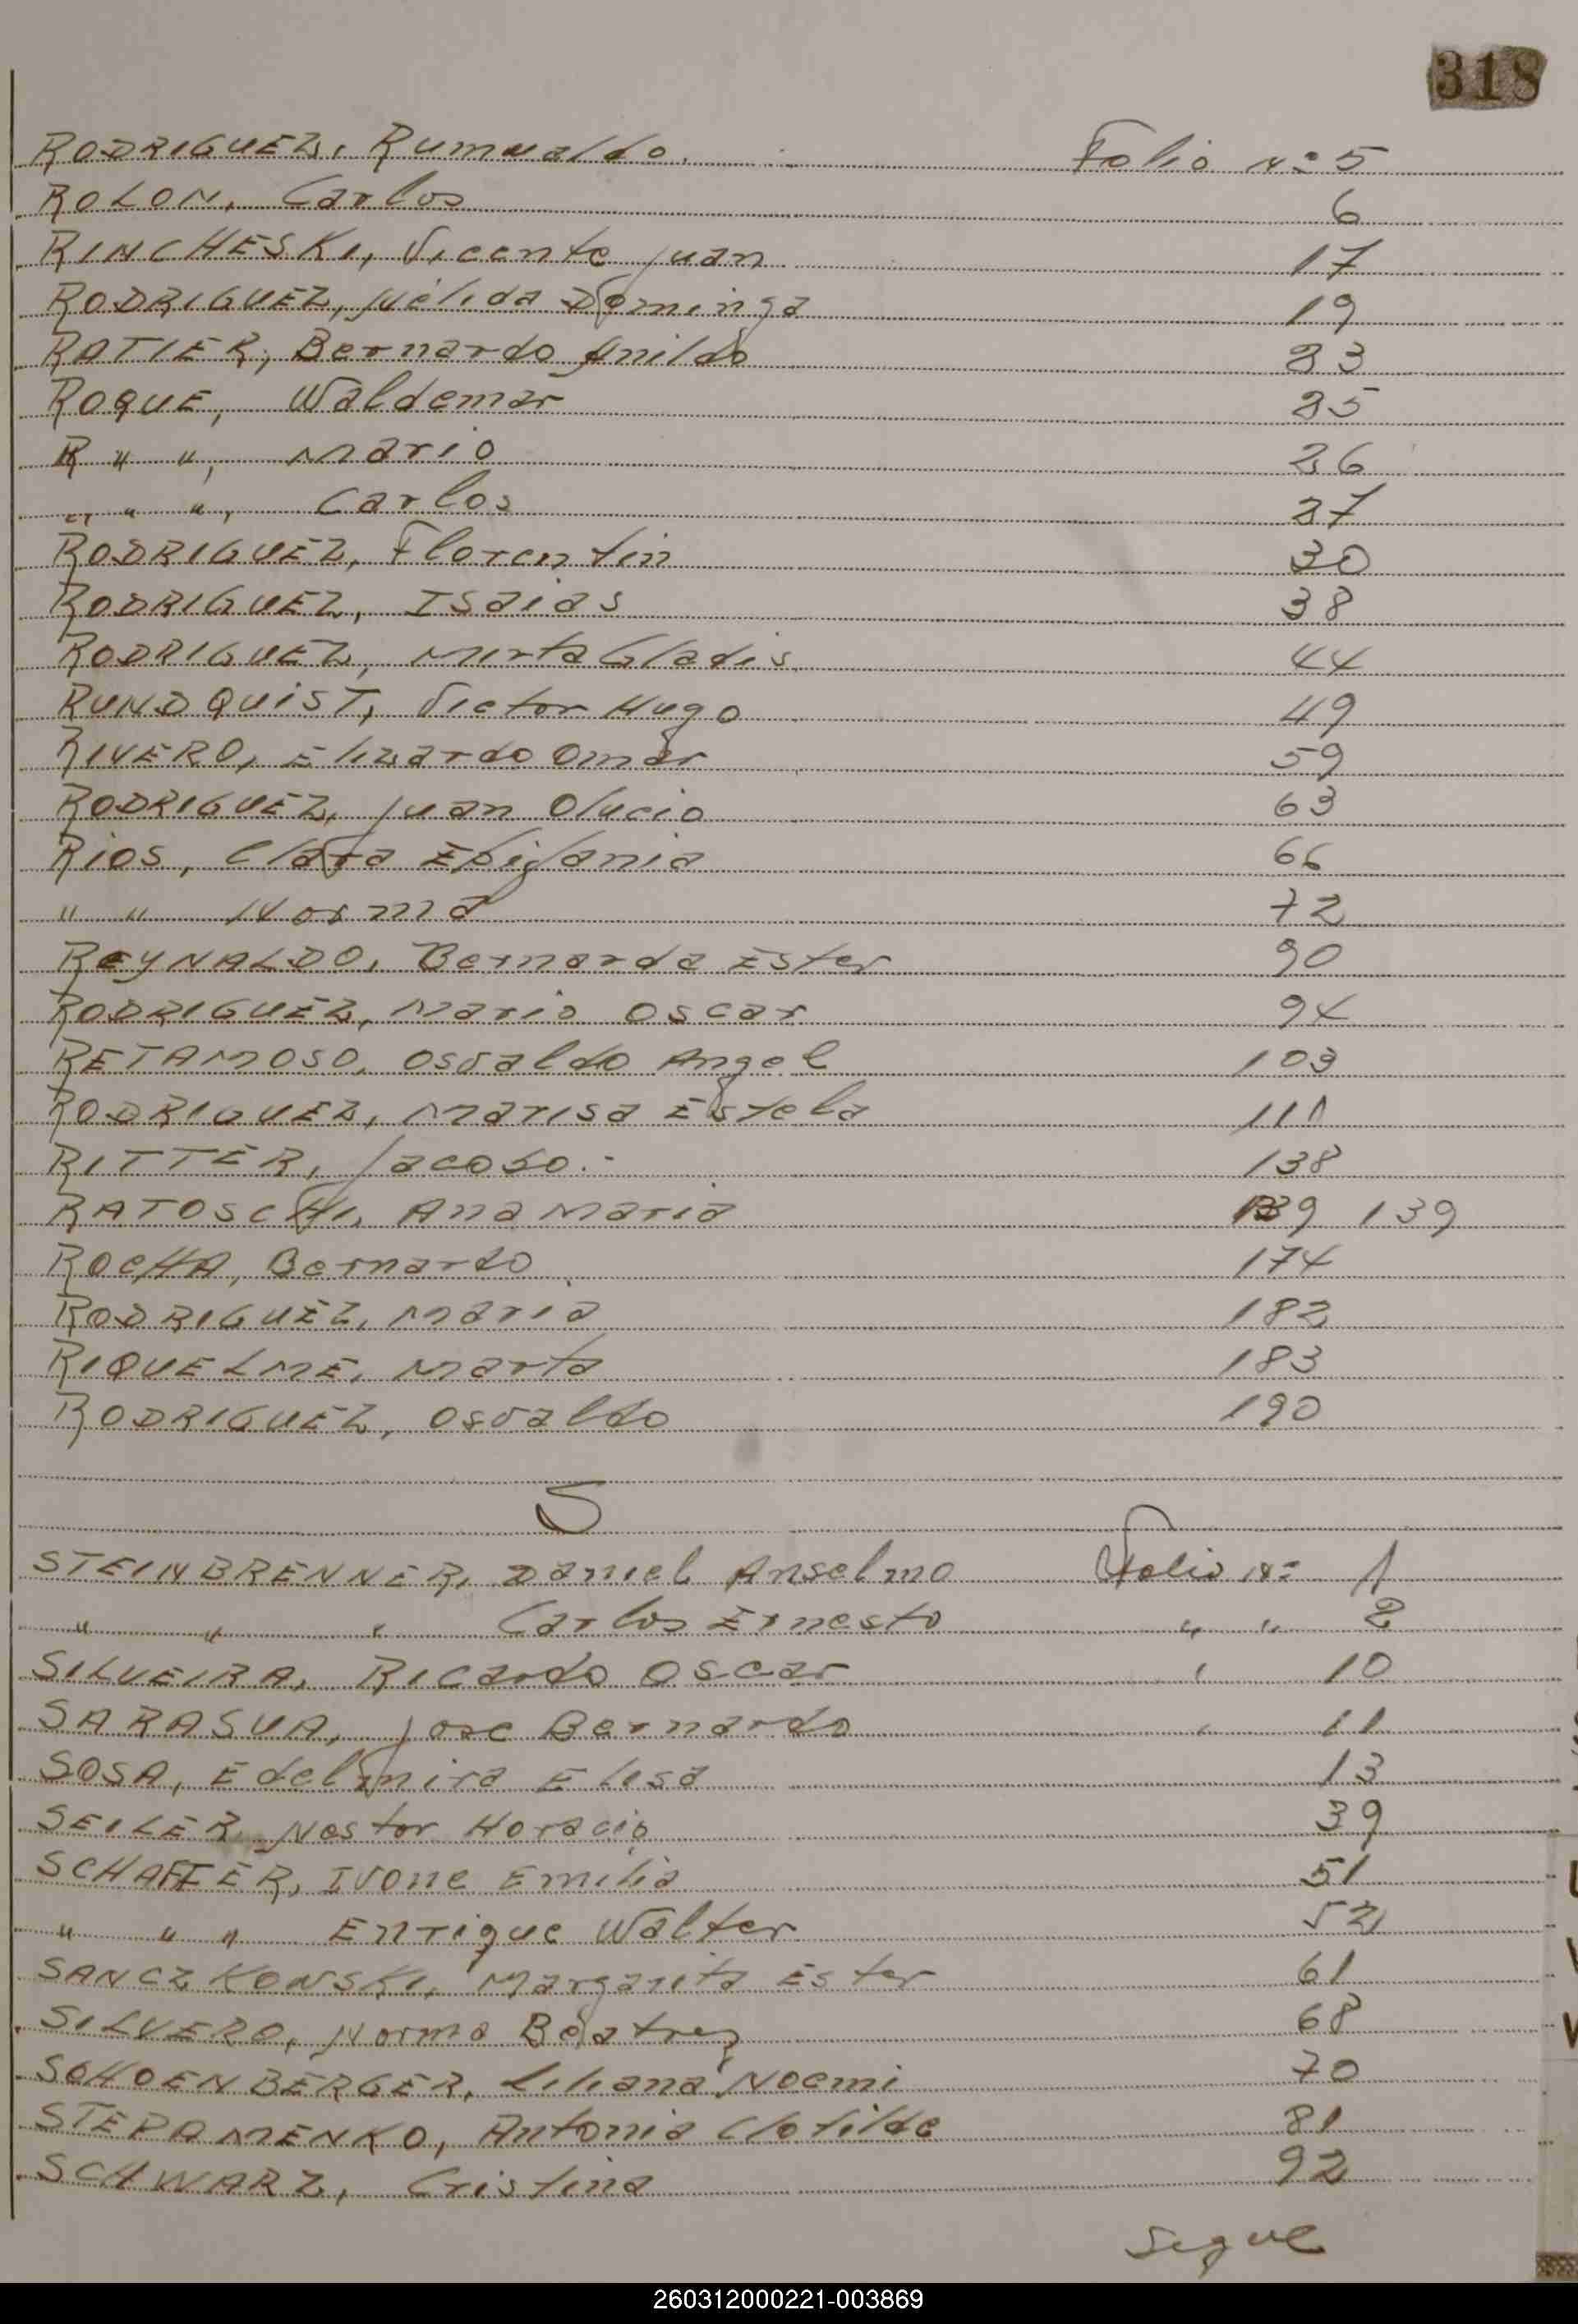 318
RODRIGUEZ, Rumualdo. Folio Nº 5
ROLON, Carlos 6
RINCHESKI, Vicente Juan 17
RODRIGUEZ, Nélida Dominga 19
RATIER, Bernardo Anildo 23
ROQUE, Waldemar 25
R " ", Mario 26
" " ", Carlos 27
RODRIGUEZ, Florentin 30
RODRIGUEZ, Isaias 38
RODRIGUEZ, Mirta Gladis 44
RUNDQUIST, Victor Hugo 49
RIVERO, Elizardo Omar 59
RODRIGUEZ, Juan Olucio 63
RIOS, Clara Epifania 66
" " Norma 72
REYNALDO, Bernarda Ester 90
RODRIGUEZ, Mario Oscar 94
RETAMOSO, Osvaldo Angel 103
RODRIGUEZ, Marisa Estela 111
RITTER, Jacobo.- 138
RATOSCHI, Ana Maria 139 139
ROCHA, Bernardo 174
RODRIGUEZ, Maria 182
RIQUELME, Marta 183
RODRIGUEZ, Osvaldo 190
S
STEINBRENNER, Daniel Anselmo Folio Nº 1
" " " Carlos Ernesto " " 2
SILVEIRA, Ricardo Oscar " 10
SARASUA, Jose Bernardo " 11
SOSA, Edelmira Elisa 13
SEILER, Nestor Horacio 39
SCHAFFER, Ivone Emilia 51
" " " Enrique Walter 52
SANCZKOWSKI, Margarita Ester 61
SILVERO, Norma Beatrez 68
SCHOENBERGER, Liliana Noemi 70
STEPAMENKO, Antonia Clotilde 81
SCHWARZ, Cristina 92
Segue
260312000221-003869